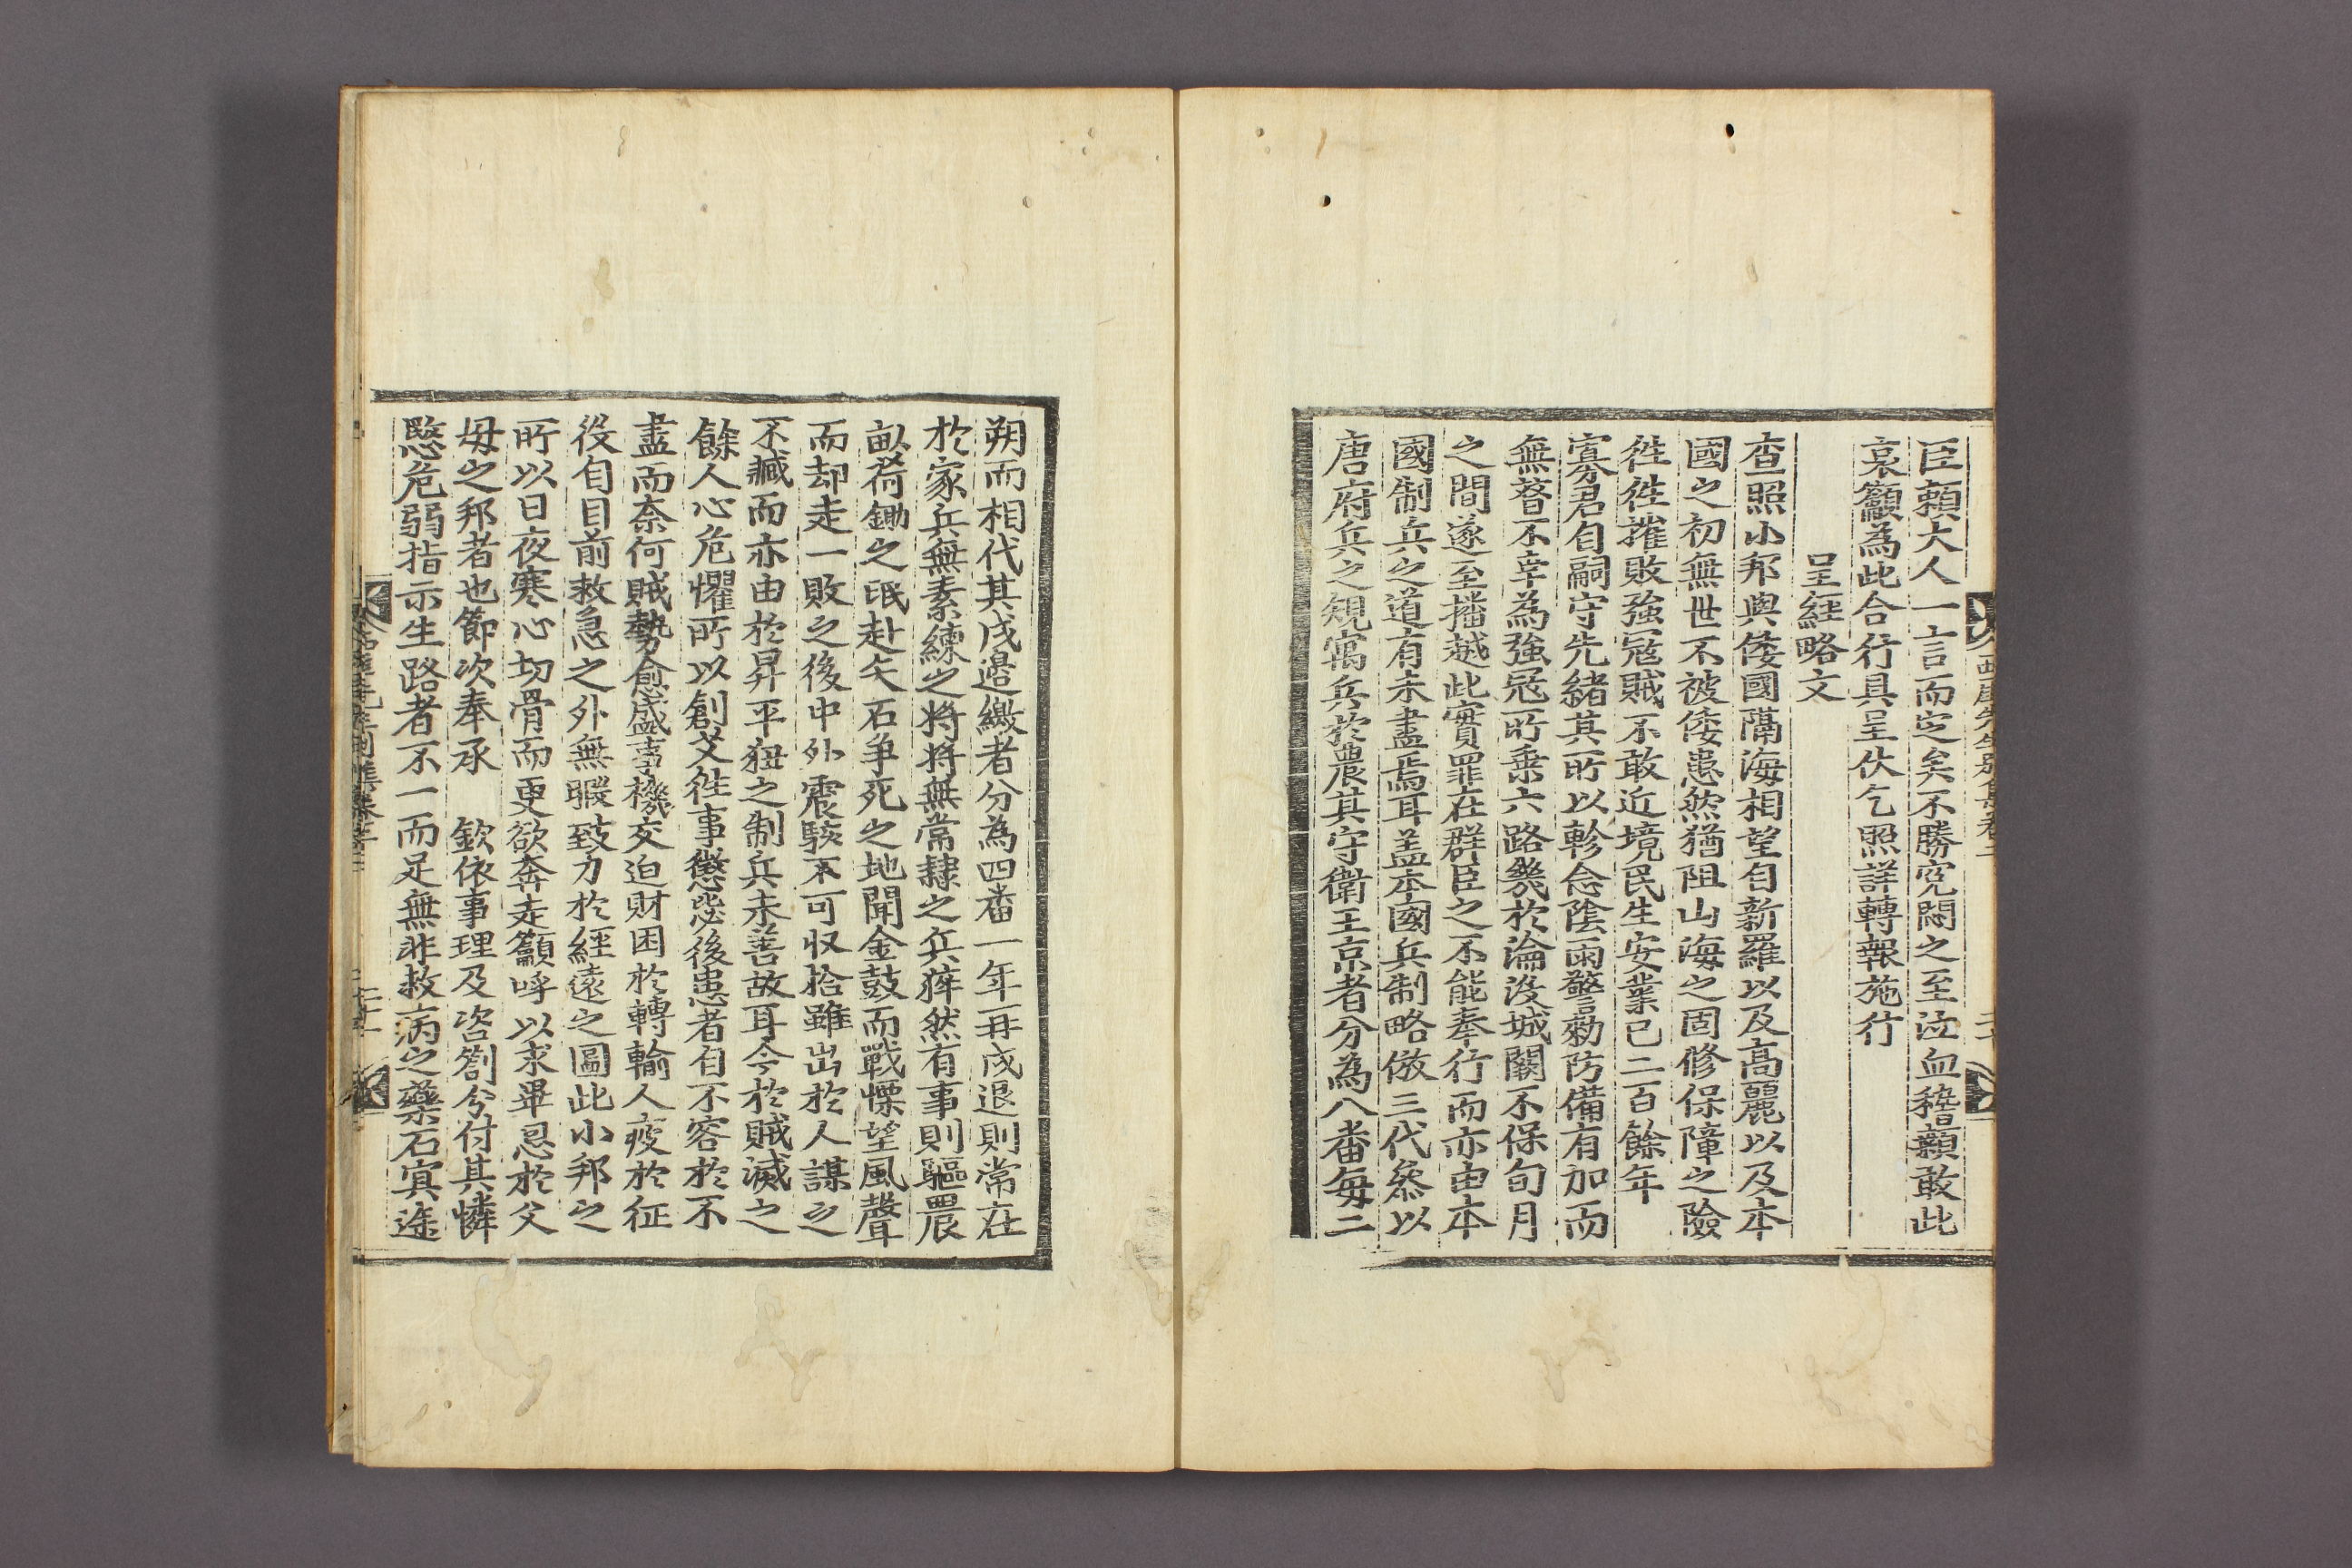 臣賴大人一言而定矣不勝冤悶之至泣血稽顙敢此
哀籲為此合行具呈伏乞照詳轉報施行
呈經略文
查照小邦與倭國隔海相望自新羅以及高麗以及本
國之初無世不被倭患然猶阻山海之固修保障之險
徃徃摧敗強寇賊不敢近境民生安業已二百餘年
寡君自嗣守先緒其所以軫念陰雨警勑防備有加而
無替不幸為強寇所乗六路幾於淪没城闕不保旬月
之間遂至播越此實罪在群臣之不能奉行而亦由本
國制兵之道有未盡焉耳盖本國兵制略倣三代叅以
唐府兵之規寓兵於農其守衛王京者分為八番每二
朔而相代其戍邉繳者分為四番一年一再戍退則常在
於家兵無素練之將將無常隷之兵猝然有事則驅農
畒荷鋤之氓赴矢石争死之地聞金鼓而戰慄望風聲
而却走一敗之後中外震駭不可収拾雖出於人謀之
不臧而亦由於昇平狃之制兵未善故耳今於賊滅之
餘人心危懼所以創艾徃事懲毖後患者自不容於不
盡而奈何賊勢愈盛事機交迫財困於轉輸人疲於征
役自目前救急之外無暇致力於經遠之圖此小邦之
所以日夜寒心切骨而更欲奔走籲呼以求畢恩於父
母之邦者也節次奉承　欽依事理及咨劄分付其憐
愍危弱指示生路者不一而足無非救病之藥石冥途
西厓先生别集卷
二十